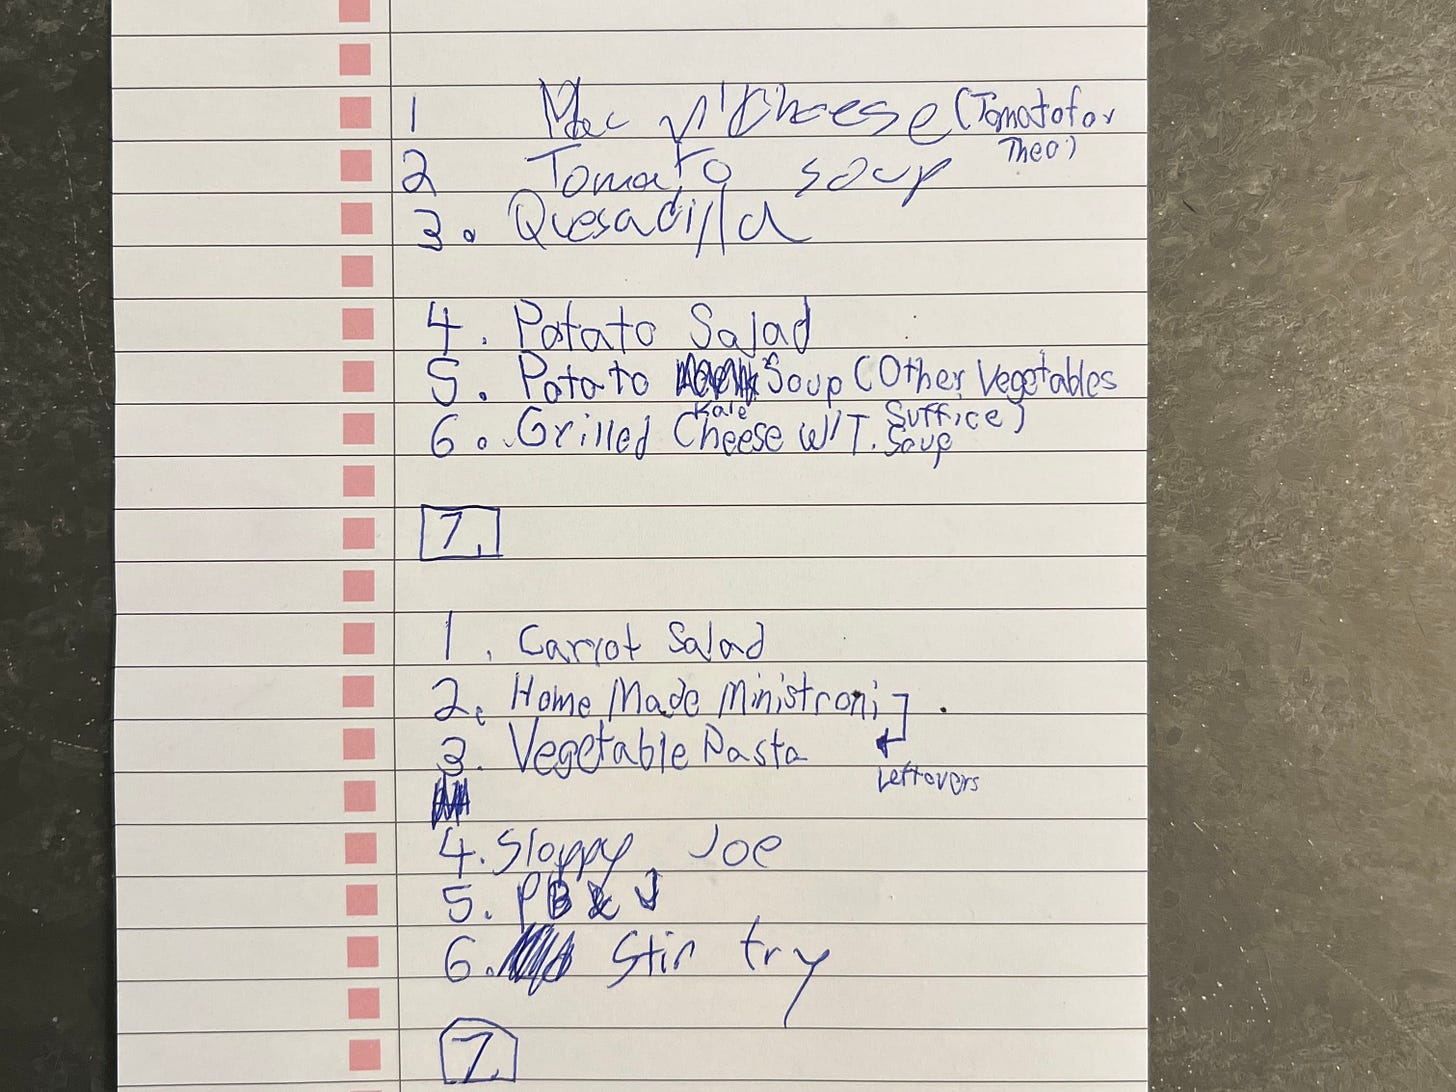 1 Mac n' Cheese (Tomato for
Theo)
2 Tomato soup
3. Quesadilla
4. Potato Salad
5. Potato Soup (Other Vegetables
Suffice)
Kale
6. Grilled Cheese w/ T. Soup
7.
1. Carrot Salad
2. Home Made Ministroni
3. Vegetable Pasta
Leftovers
4. Sloppy Joe
5. PB & J
6. Stir fry
7.